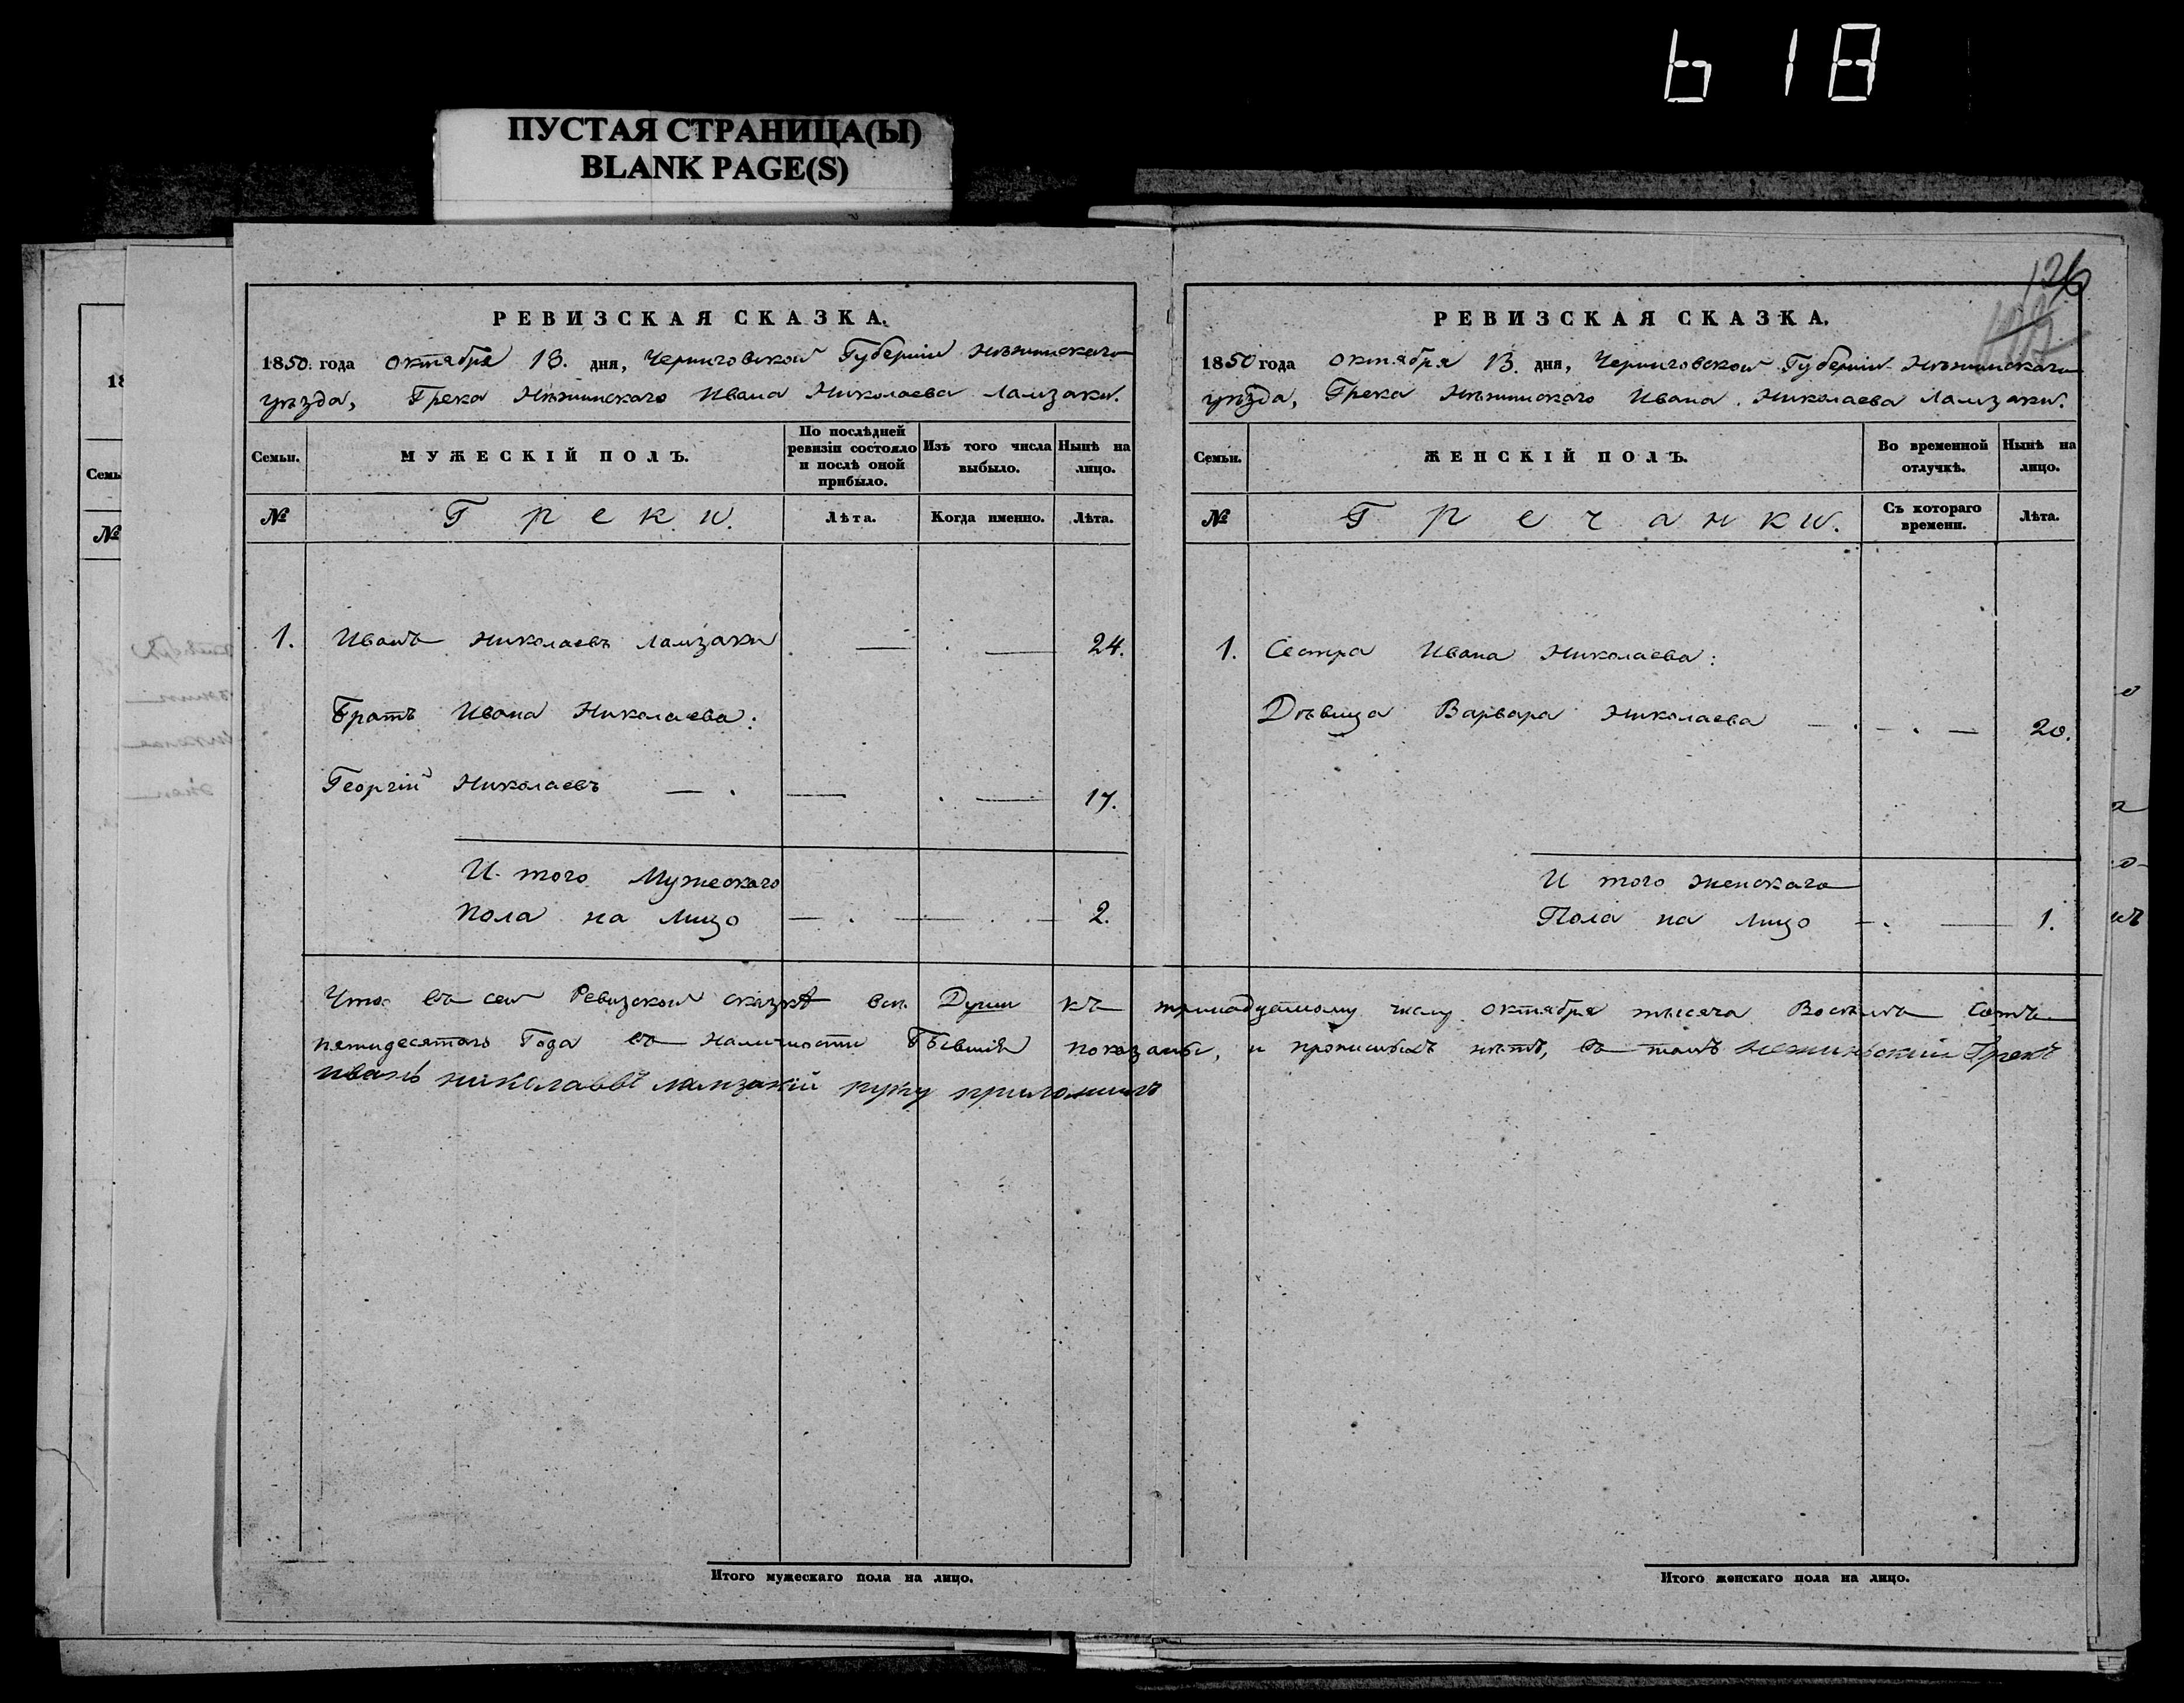 618
ПУСТАЯ СТРАНИЦА(Ы)
BLANK PAGE(S)
126
РЕВИЗСКАЯ СКАЗКА.
1850. года октября 13. дня, Черниговской Губерніи Нѣжинскаго
уѣзда, Грека Нѣжинскаго Ивана Николаева Ламзаки.
Семьи.
МУЖЕСКІЙ ПОЛЪ.
По послѣдней ревизіи состояло и послѣ оной прибыло.
Изъ того числа выбыло.
Нынѣ на лицо.
№
Греки.
Лѣта.
Когда именно.
Лѣта.
1. Иванъ Николаевъ Ламзаки — — 24.
Братъ Ивана Николаева:
Георгій Николаевъ — — — 17.
И того Мужескаго
пола на лицо — — — 2.
РЕВИЗСКАЯ СКАЗКА.
1850 года октября 13. дня, Черниговской Губерніи Нѣжинскаго
уѣзда, Грека Нѣжинскаго Ивана Николаева Ламзаки.
Семьи.
ЖЕНСКІЙ ПОЛЪ.
Во временной отлучкѣ.
Нынѣ на лицо.
№
Гречанки.
Съ котораго времени.
Лѣта.
1. Сестра Ивана Николаева:
Дѣвица Варвара Николаева — — — 20.
И того женскаго
Пола на лицо — — 1.
Что въ сей Ревизской сказкѣ всѣ Души къ тринадцатому числу октября тысяча Восемь Сотъ
пятидесятаго Года въ наличности Бывшія показаны, и прописныхъ нѣтъ, въ томъ нежиньский Грекъ
иванъ николаевъ ламзакій руку приложилъ
Итого мужескаго пола на лицо.
Итого женскаго пола на лицо.